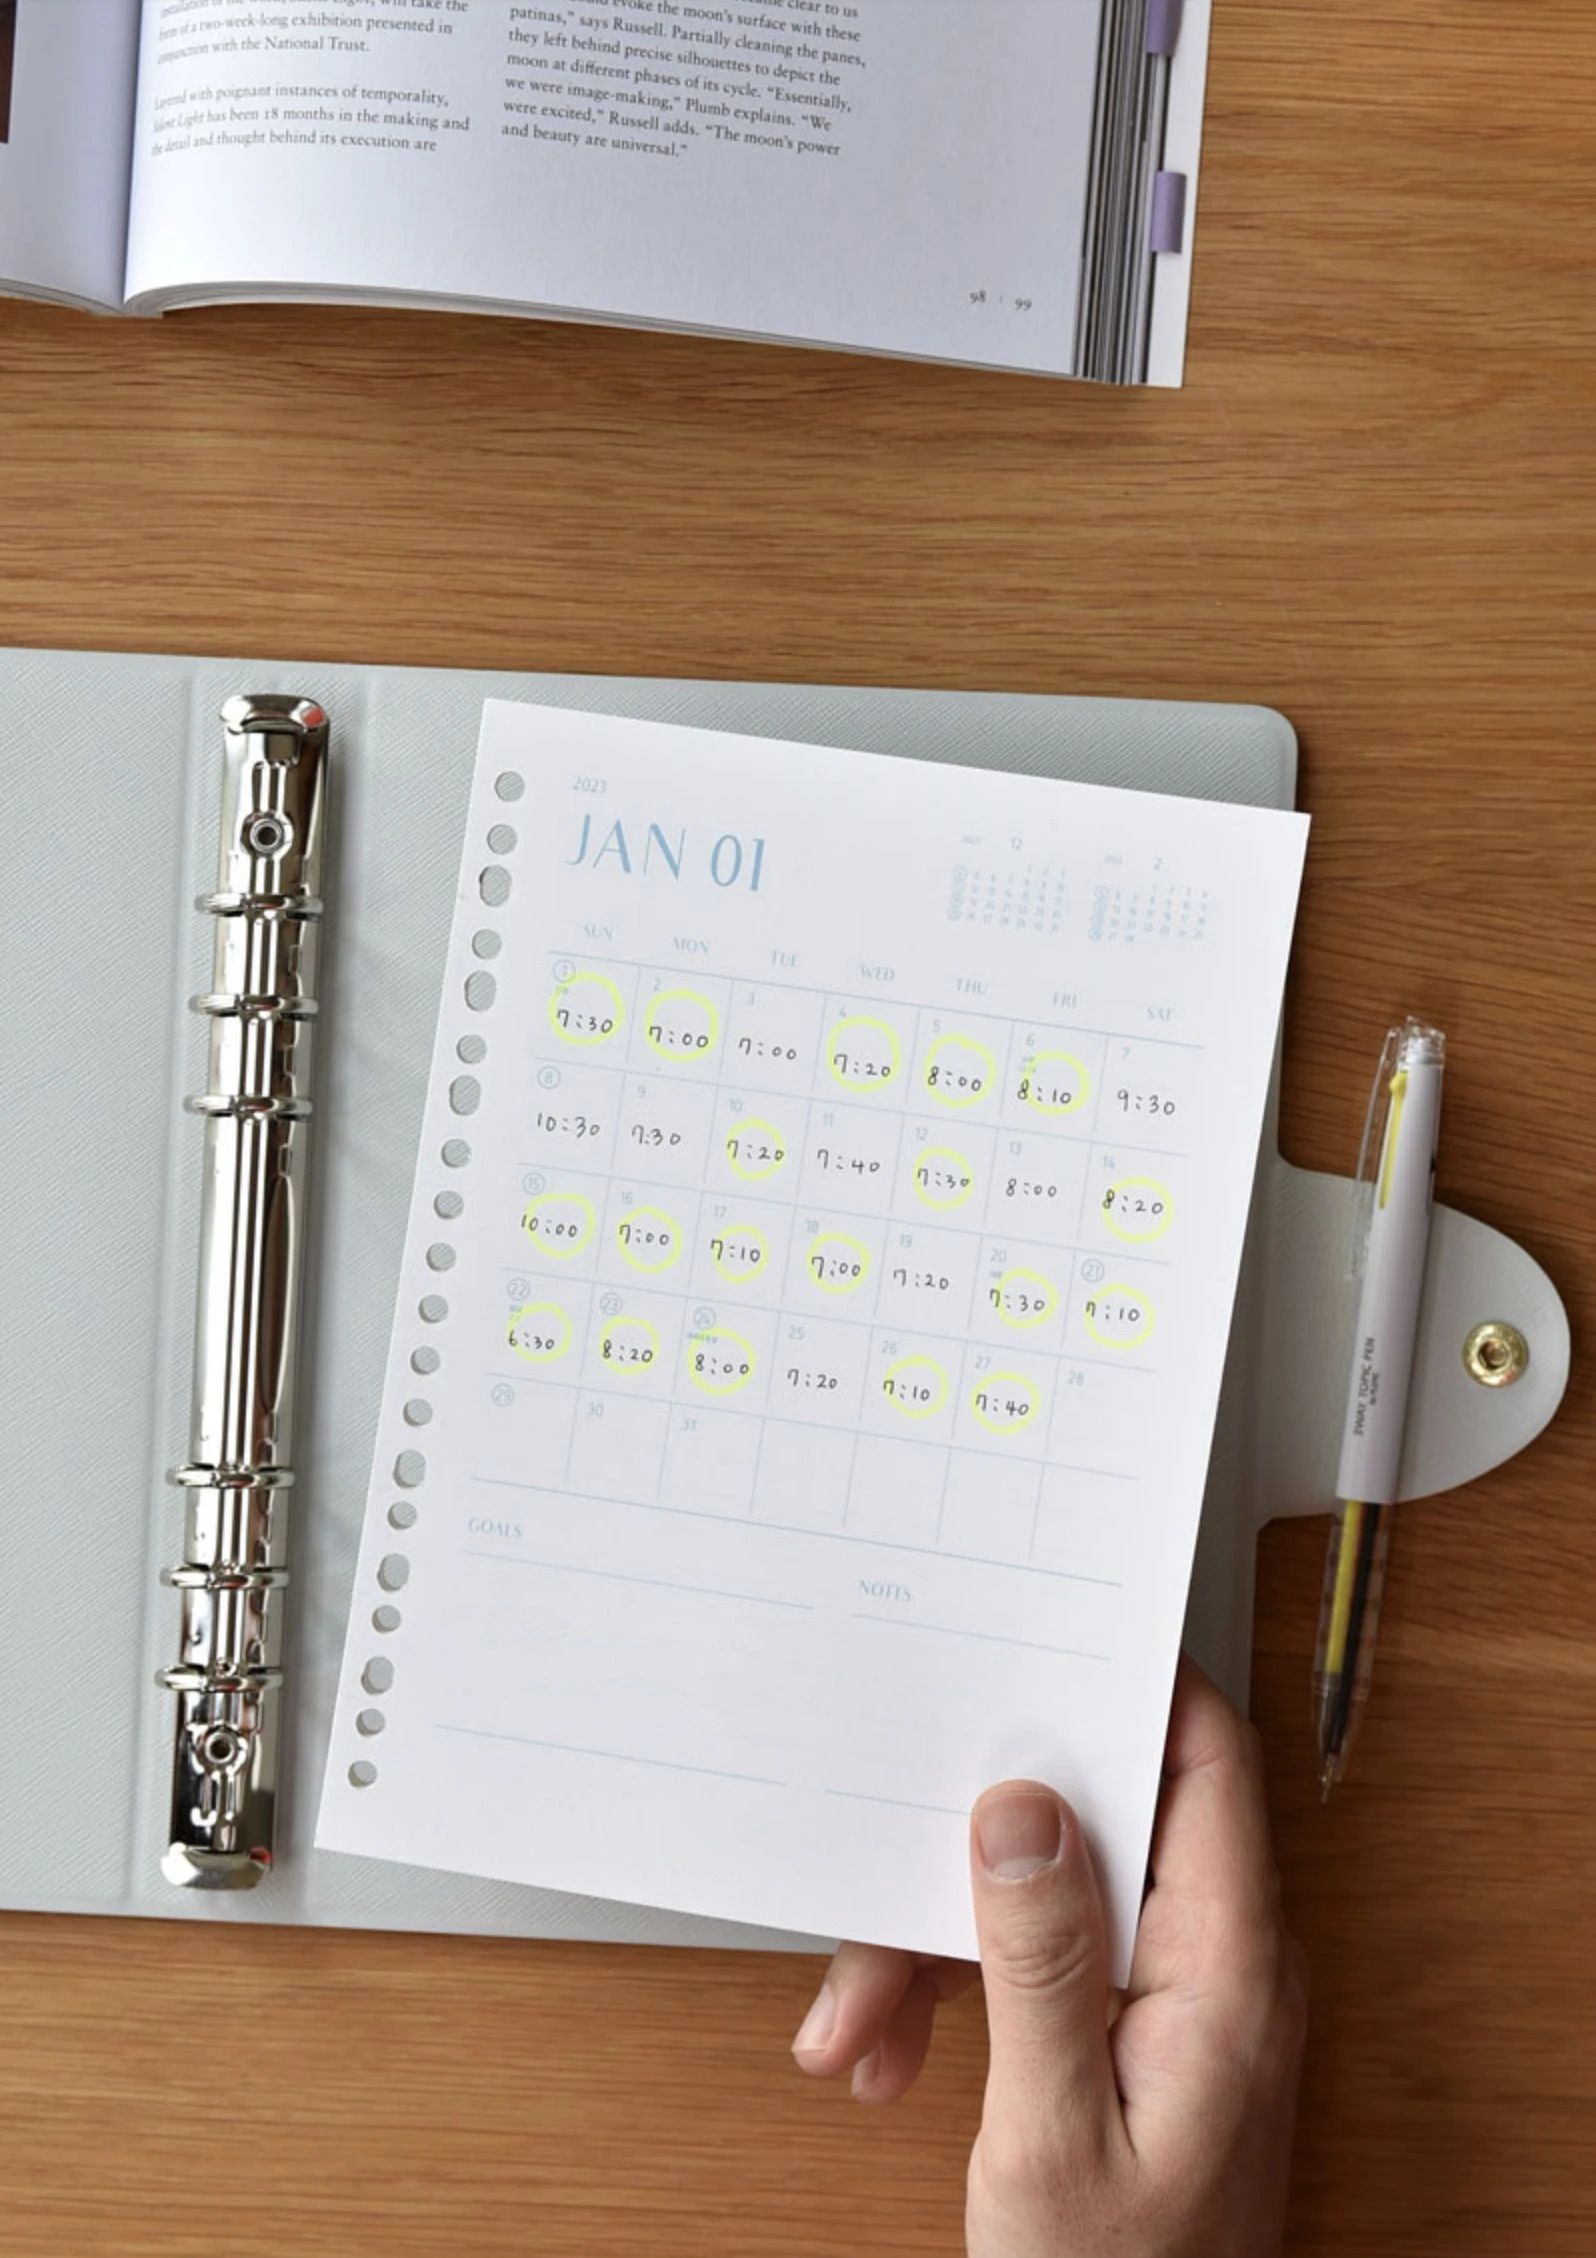 will take the
form of a two-week-long exhibition presented in
conjunction with the National Trust.
Layered with poignant instances of temporality,
Silent Light has been 18 months in the making and
the detail and thought behind its execution are
clear to us
evoke the moon's surface with these
patinas," says Russell. Partially cleaning the panes,
they left behind precise silhouettes to depict the
moon at different phases of its cycle. "Essentially,
we were image-making," Plumb explains. "We
were excited," Russell adds. "The moon's power
and beauty are universal."
98 | 99
2023
JAN 01
12
2
SUN MON TUE WED THU FRI SAT
1 2 3 4 5 6 7
7:30 7:00 7:00 7:20 8:00 8:10 9:30
8 9 10 11 12 13 14
10:30 7:30 7:20 7:40 7:30 8:00 8:20
15 16 17 18 19 20 21
10:00 7:00 7:10 7:00 7:20 7:30 7:10
22 23 24 25 26 27 28
6:30 8:20 8:00 7:20 7:10 7:40
29 30 31
GOALS
NOTES
3WAY TOPIC PEN